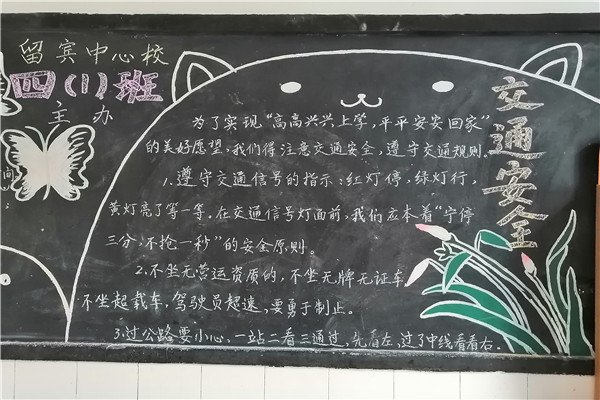 留宾中心校
四(1)班
主办
交通安全
为了实现“高高兴兴上学,平平安安回家”
的美好愿望,我们得注意交通安全,遵守交通规则。
1.遵守交通信号的指示:红灯停,绿灯行,
黄灯亮了等一等。在交通信号灯面前,我们应本着“宁停
三分,不抢一秒”的安全原则。
2.不坐无营运资质的,不坐无牌无证车,
不坐起载车,驾驶员起速,要勇于制止。
3.过公路要小心,一站二看三通过,先看左,过了中线看看右。
向